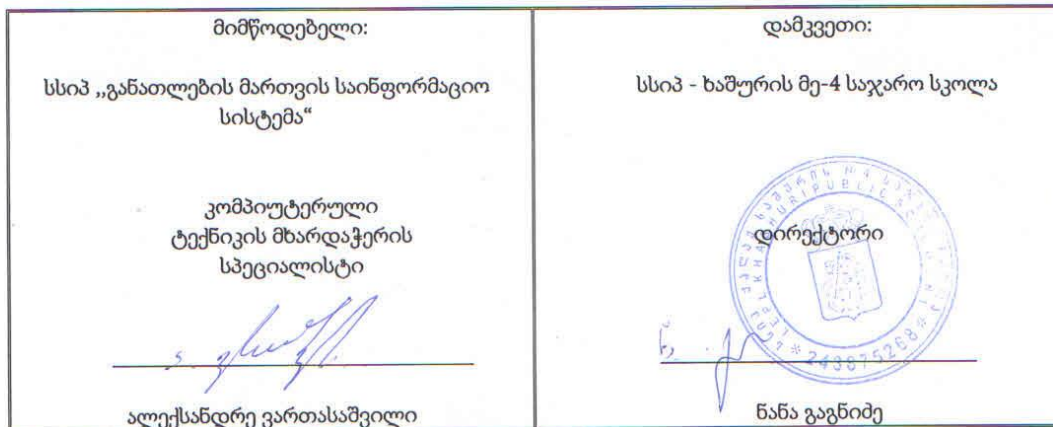 მიმწოდებელი:
სსიპ „განათლების მართვის საინფორმაციო
სისტემა“
კომპიუტერული
ტექნიკის მხარდაჭერის
სპეციალისტი
ალექსანდრე ვართასაშვილი
დამკვეთი:
სსიპ - ხაშურის მე-4 საჯარო სკოლა
დირექტორი
ნანა გაგნიძე